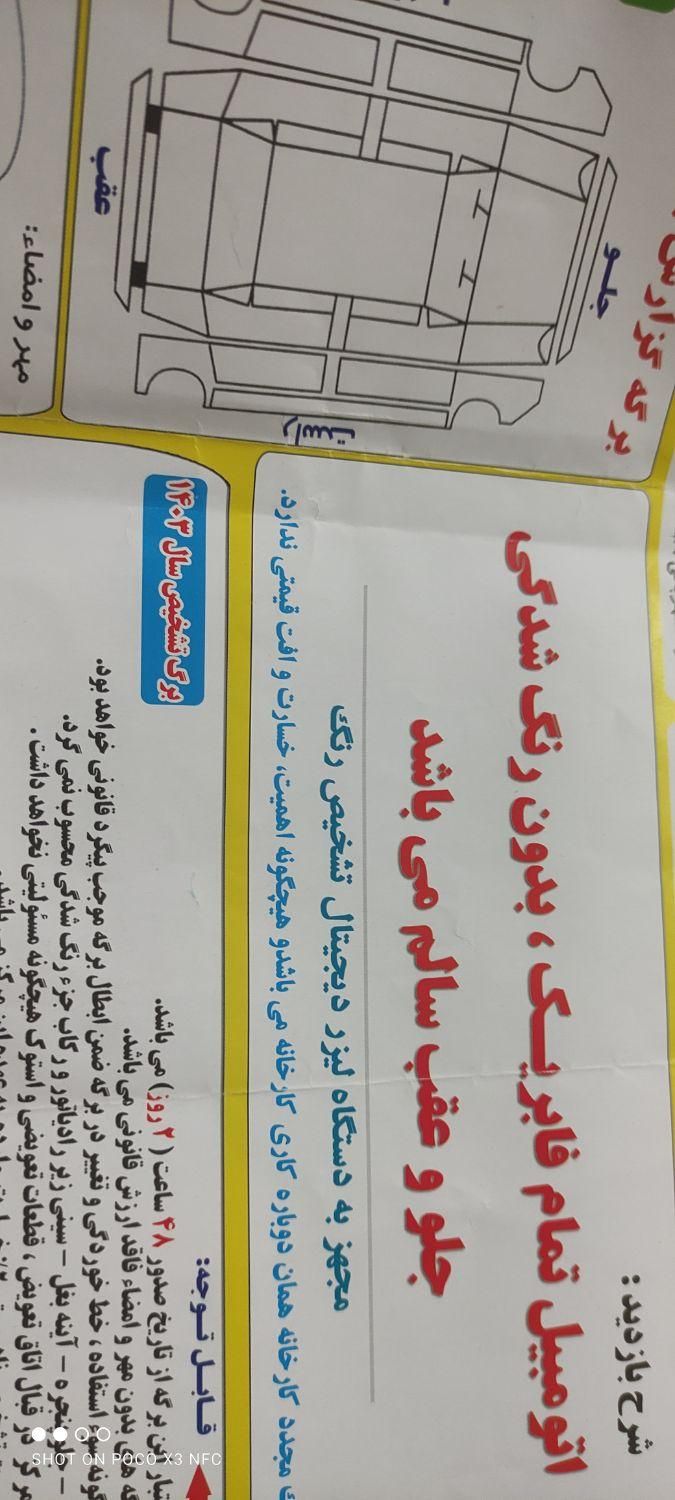 برگه گزارش
جلو
عقب
مهر و امضاء:
شرح بازدید:
اتومبیل تمام فابریک، بدون رنگ شدگی
جلو و عقب سالم می باشد
مجهز به دستگاه لیزر دیجیتال تشخیص رنگ
مجدد کارخانه همان دوباره کاری کارخانه می باشدو هیچگونه اهمیت، خسارت و افت قیمتی ندارد.
برگ تشخیص سال ۱۴۰۳
قابل توجه:
این برگه از تاریخ صدور ۴۸ ساعت (۲ روز) می باشد.
بدون مهر و امضاء فاقد ارزش قانونی می باشد.
استفاده، خط خوردگی و تغییر در برگه ضمن ابطال برگه موجب پیگرد قانونی خواهد بود.
– آینه بغل – سینی زیر رادیاتور و رکاب جزء رنگ شدگی محسوب نمی گردد.
در قبال اتاق تعویض، قطعات تعویضی و استوک هیچگونه مسئولیتی نخواهد داشت.
SHOT ON POCO X3 NFC